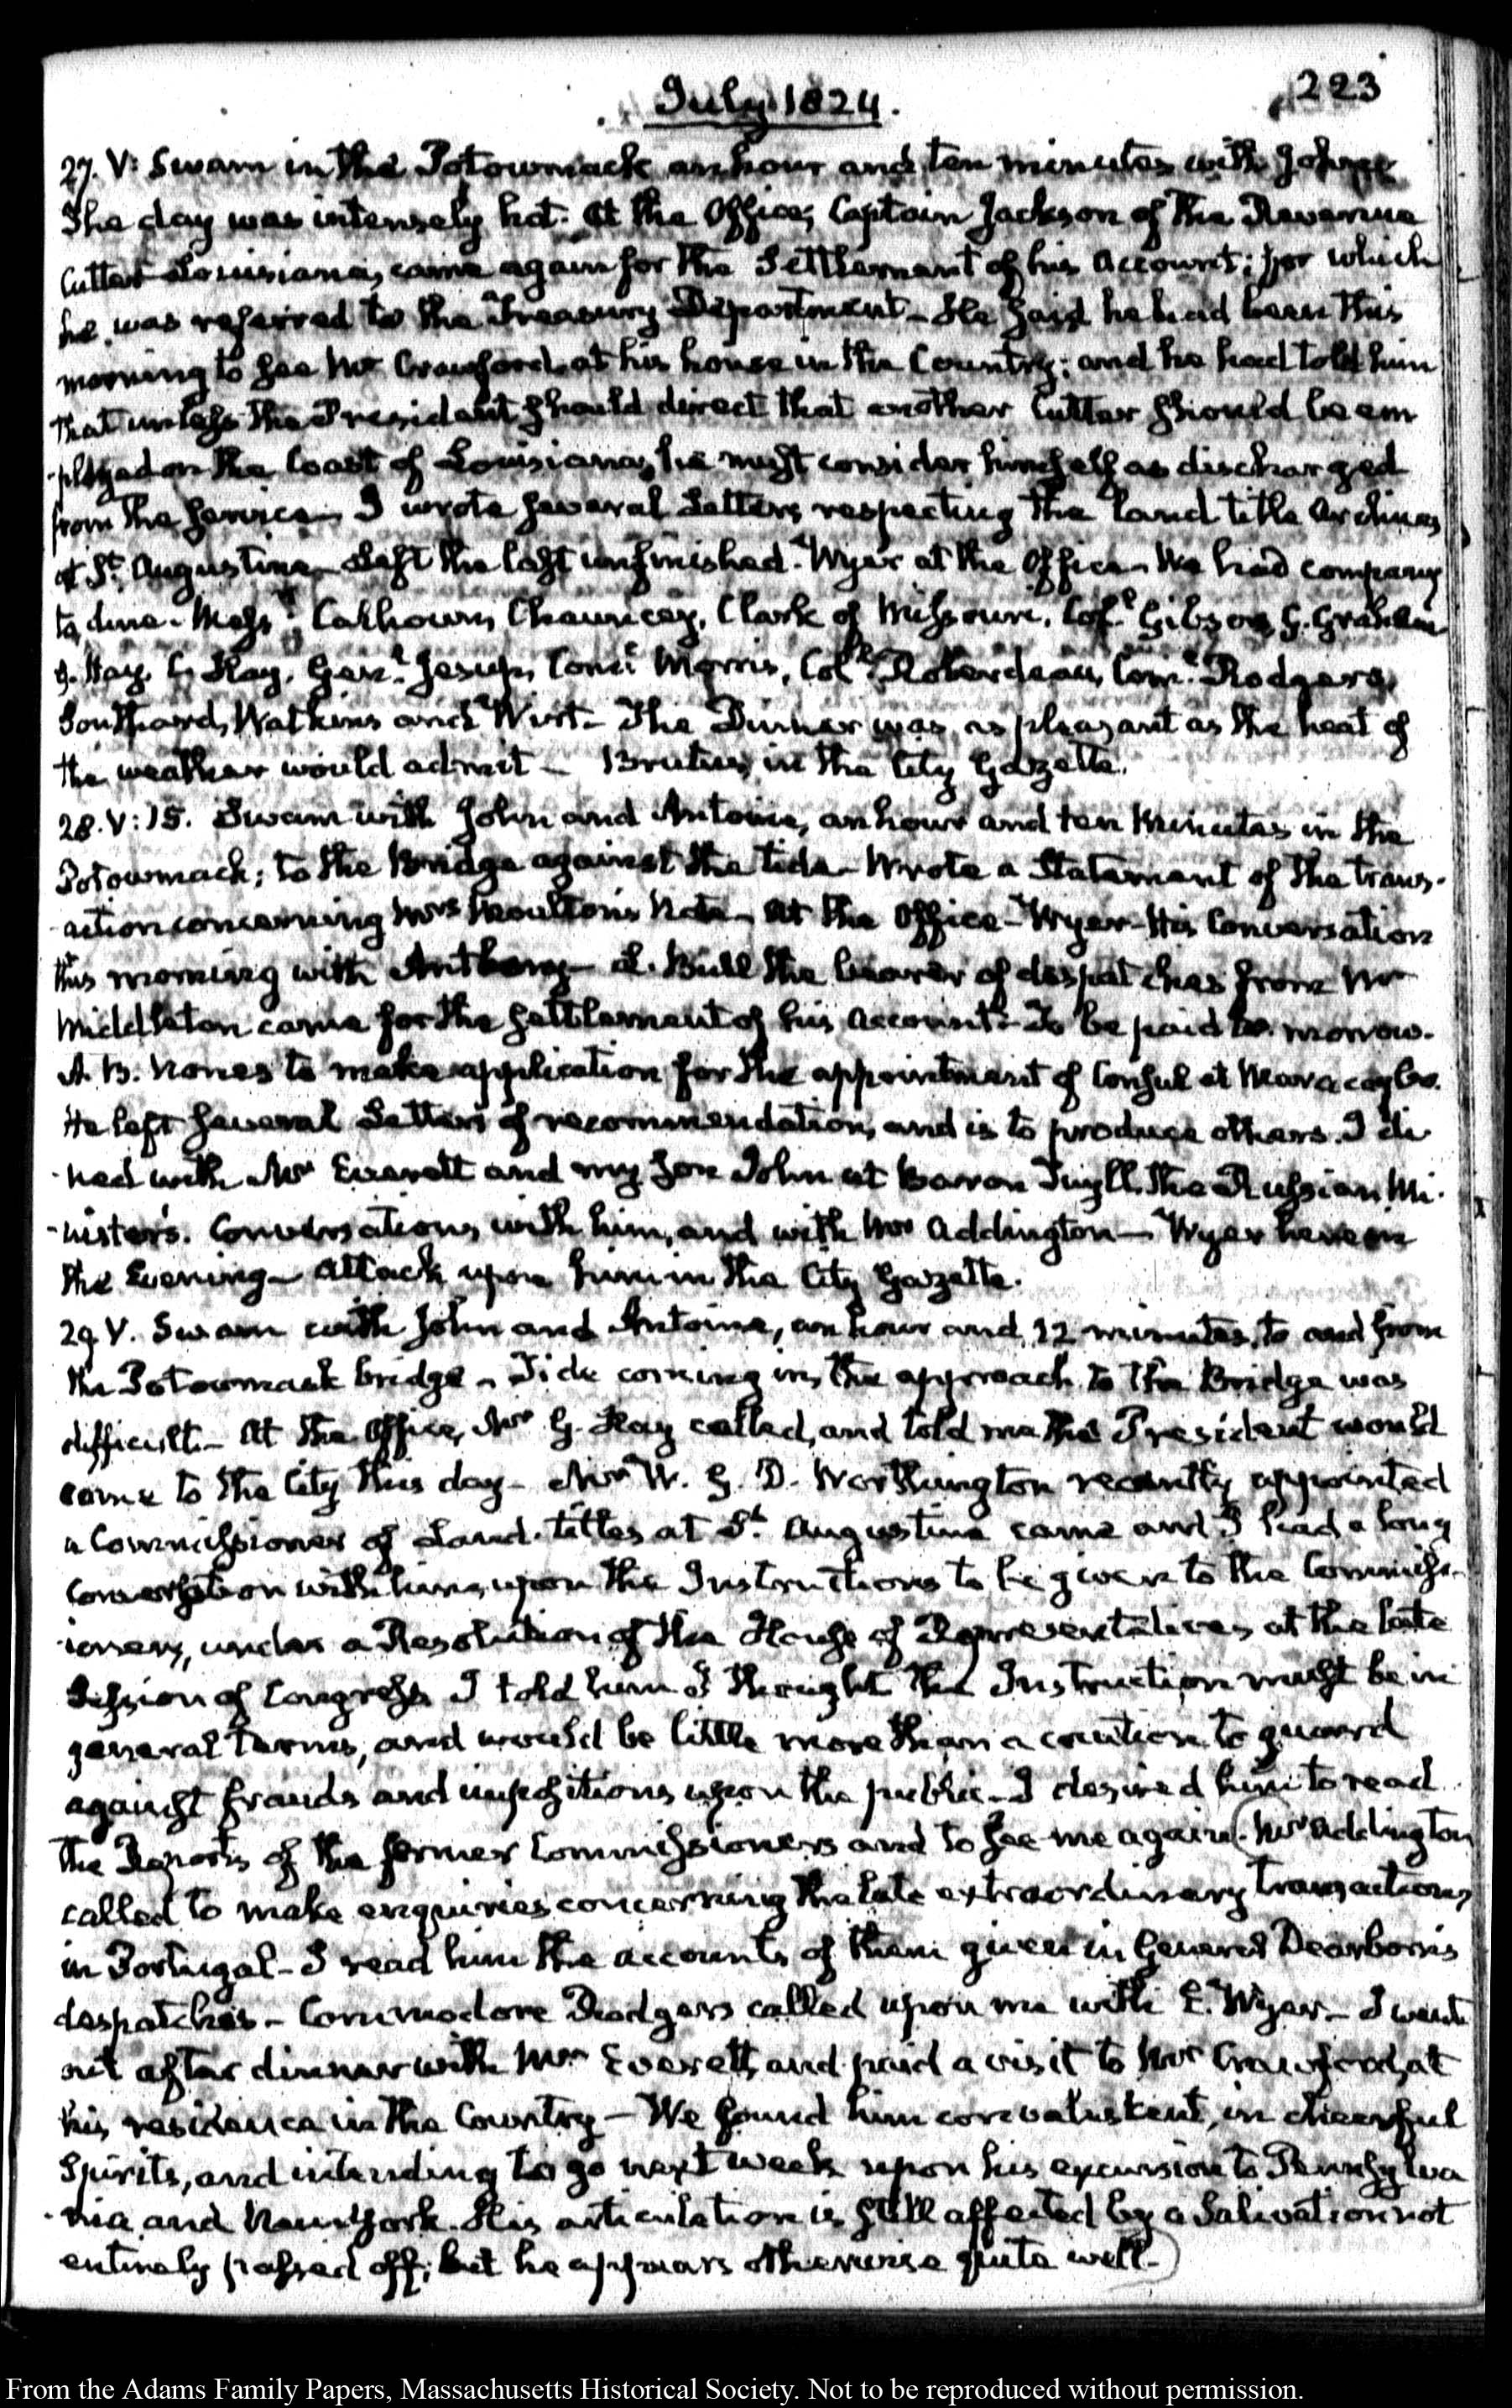 July 1824.
223
27. V: Swam in the Potowmack an hour and ten minutes with John
The day was intensely hot. At the Office; Captain Jackson of the Revenue
Cutter Louisiana, came again for the Settlement of his Account; for which
he was referred to the Treasury Department – He said he had been this
morning to see Mr Crawford, at his house in the Country; and he had told him
that unless the President should direct that another Cutter should be em
-ployed on the Coast of Louisiana, he must consider himself as discharged
from the service – I wrote several Letters respecting the land title Archives
at St. Augustine – Left the last unfinished. Wyer at the Office – We had company
to dine – Messrs. Calhoun, Chauncey, Clark of Missouri, Col. Gibson, G. Graham
G. Hay, C. Hay, Genl. Jesup, Comr. Morris, Coll. Roberdeau, Com. Rodgers,
Southard, Watkins and Wirt – The Dinner was as pleasant as the heat of
the weather would admit – Brutus in the City Gazette.
28. V: 15. Swam with John and Antoine, an hour and ten minutes in the
Potowmack; to the Bridge against the tide – Wrote a Statement of the trans-
-action concerning Mrs Moulton's Note – At the Office – Wyer – His Conversation
this morning with Anthony – L. Bull the bearer of despatches from Mr
Middleton came for the settlement of his Account – To be paid to-morrow.
A. B. Nones to make application for the appointment of Consul at Maracaybo.
He left several Letters of recommendation, and is to produce others. I di
-ned with Mr Everett and my son John at Baron Tuyll, the Russian Mi-
-nister's. Conversations with him, and with Mr Addington – Wyer here in
the Evening – Attack upon him in the City Gazette.
29 V. Swam with John and Antoine, an hour and 12 minutes, to and from
the Potowmack bridge – Tide coming in, the approach to the Bridge was
difficult – At the Office, Mr G. Hay called, and told me the President would
come to the City this day – Mr W. G. D. Worthington recently appointed
a Commissioner of Land-titles at St. Augustine came and I had a long
conversation with him, upon the Instructions to be given to the Commiss-
-ioners, under a Resolution of the House of Representatives at the late
Session of Congress. I told him I thought the Instruction must be in
general terms, and would be little more than a caution to guard
against frauds and impositions upon the public – I desired him to read
the Reports of the former Commissioners and to see me again. (Mr Addington
called to make enquiries concerning the late extraordinary transactions
in Portugal – I read him the accounts of them given in General Dearborn's
despatches – Commodore Rodgers called upon me with E. Wyer – I went
out after dinner with Mr Everett, and paid a visit to Mr Crawford, at
his residence in the Country – We found him convalescent, in cheerful
Spirits, and intending to go next week upon his excursion to Pennsylva
-nia and New-York. His articulation is still affected by a Salivation not
entirely passed off; but he appears otherwise quite well –)
From the Adams Family Papers, Massachusetts Historical Society. Not to be reproduced without permission.